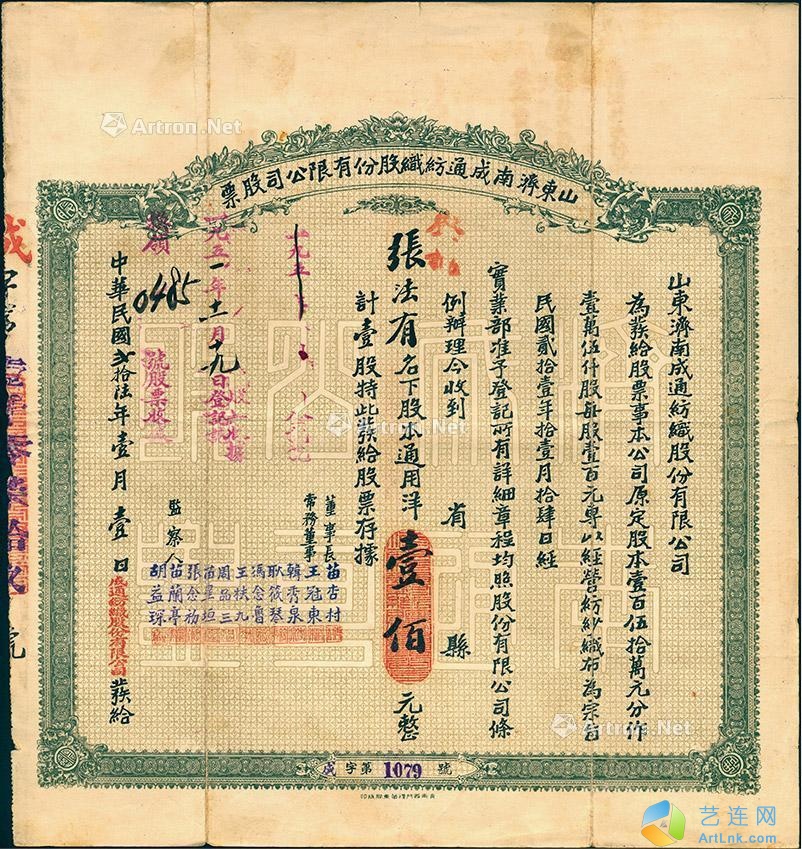 山東濟南成通紡織股份有限公司股票
山東濟南成通紡織股份有限公司
為發給股票事本公司原定股本壹百伍拾萬元分作
壹萬伍仟股每股壹百元專以經營紡紗織布為宗旨
民國貳拾壹年拾壹月拾肆日經
實業部准予登記所有詳細章程均照股份有限公司條
例辦理今收到 省 縣
張法有名下股本通用洋壹佰元整
計壹股特此發給股票存據
董事長 苗杏村
常務董事 王冠東
韓秀泉
耿筱琴
馮念魯
王扶九
周品三
苗星垣
監察人 張念初
苗蘭亭
胡益琛
一九五一年十一月十九日登記
換領0485號股票
中華民國貳拾法年壹月壹日成通紡織股份有限公司發給
成字第1079號
Artron.Net
Artron.Net
Artron.Net
Artron.Net
Artron.Net
艺连网
ArtLnk.com